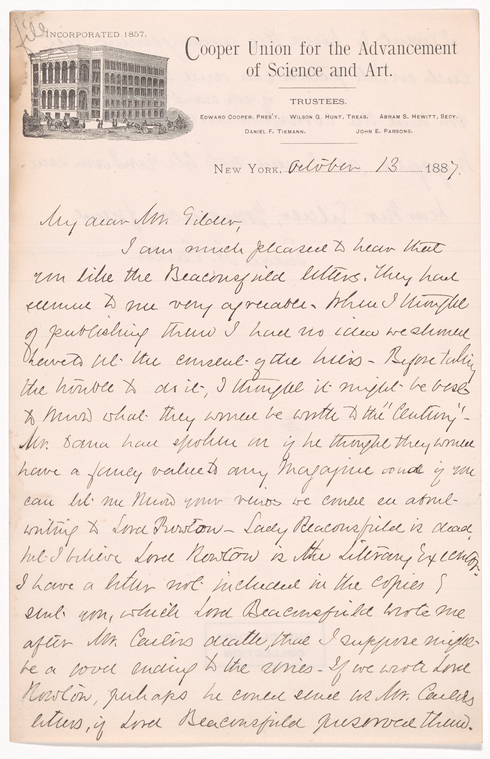 file
INCORPORATED 1857.
Cooper Union for the Advancement
of Science and Art.
TRUSTEES.
EDWARD COOPER, PRES'T. WILSON G. HUNT, TREAS. ABRAM S. HEWITT, SECY.
DANIEL F. TIEMANN. JOHN E. PARSONS.
NEW YORK, October 13 1887.
My dear Mr. Gilder,
I am much pleased to hear that
you like the Beaconsfield letters. They had
seemed to me very agreeable. When I thought
of publishing them I had no idea we should
have to get the consent of the heirs - Before taking
the trouble to do it, I thought it might be best
to know what they would be worth to the "Century" -
Mr. Dana had spoken as if he thought they would
have a fancy value to any Magazine and if you
can let me know your views we could see about
writing to Lord Rowton - Lady Beaconsfield is dead,
but I believe Lord Rowton is the Literary Executor.
I have a letter not included in the copies I
sent you, which Lord Beaconsfield wrote me
after Mr. Carter's death, that I suppose might
be a good ending to the series. If we wrote Lord
Rowton, perhaps he could send us Mr. Carter's
letters, if Lord Beaconsfield preserved them.